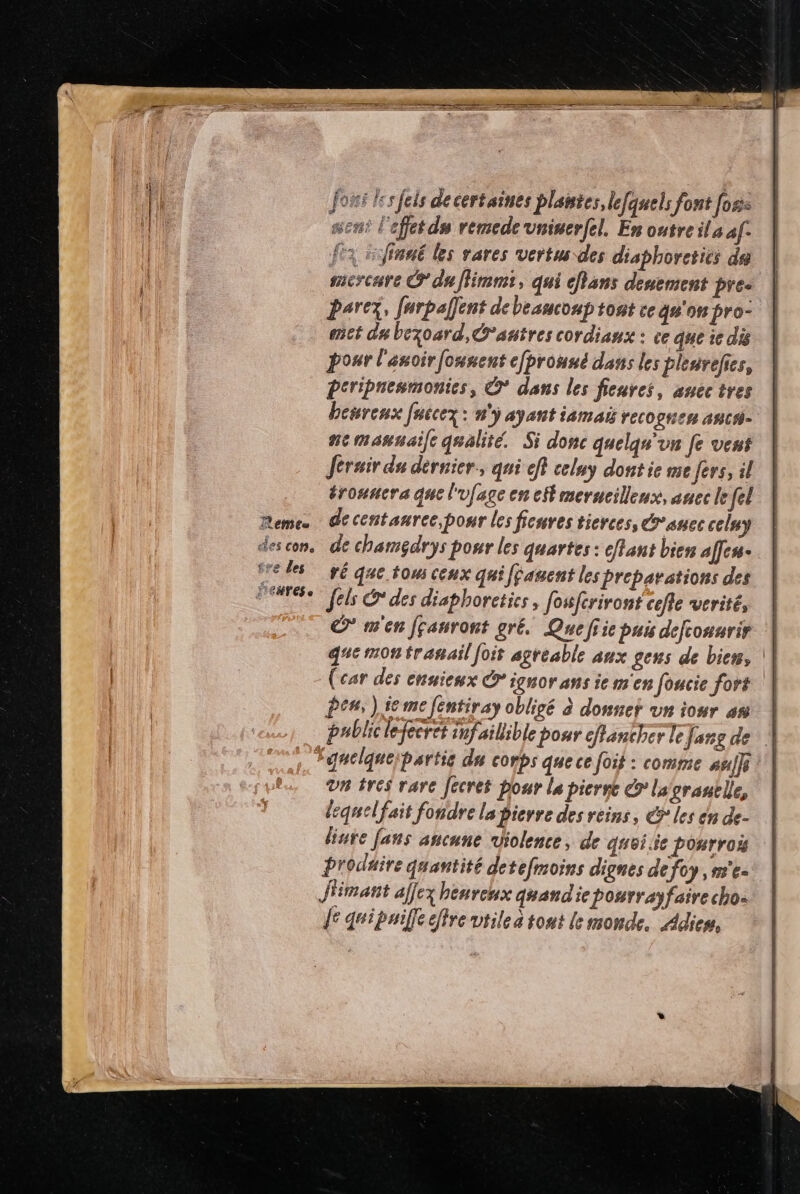 font les sels de certaines plantes, lesquels font sou-
uent l'effet du remede vniuersel. En outre il a as-
sez insinué les rares vertus des diaphoretics du
mercure & du stimmi, qui estans deuement pre-
parez, surpassent de beaucoup tout ce qu'on pro-
met du bezoard, & autres cordiaux : ce que ie dis
pour l'auoir souuent esprouué dans les pleuresies,
peripneumonies, & dans les fieures, auec tres
heureux succez : n'y ayant iamais recogneu aucu-
ne mauuaise qualité. Si donc quelqu'vn se veut
seruir du dernier, qui est celuy dont ie me sers, il
trouuera que l'vsage en est merueilleux, auec le sel
Reme- de centauree, pour les fieures tierces, & auec celuy
des con- de chamędrys pour les quartes : estant bien asseu-
tre les ré que tous ceux qui sçauent les preparations des
fieures. sels & des diaphoretics, souscriront ceste verité,
& m'en sçauront gré. Que si ie puis descouurir
que mon trauail soit agreable aux gens de bien,
(car des enuieux & ignorans ie m'en soucie fort
peu,) ie me sentiray obligé à donner vn iour au
public le secret infaillible pour estancher le sang de
quelque partie du corps que ce soit : comme aussi
vn tres rare secret pour la pierre & la grauelle,
lequel fait fondre la pierre des reins, & les en de-
liure sans aucune violence, de quoi ie pourrois
produire quantité de tesmoins dignes de foy, m'e-
stimant assez heureux quand ie pourray faire cho-
se qui puisse estre vtile à tout le monde. Adieu,